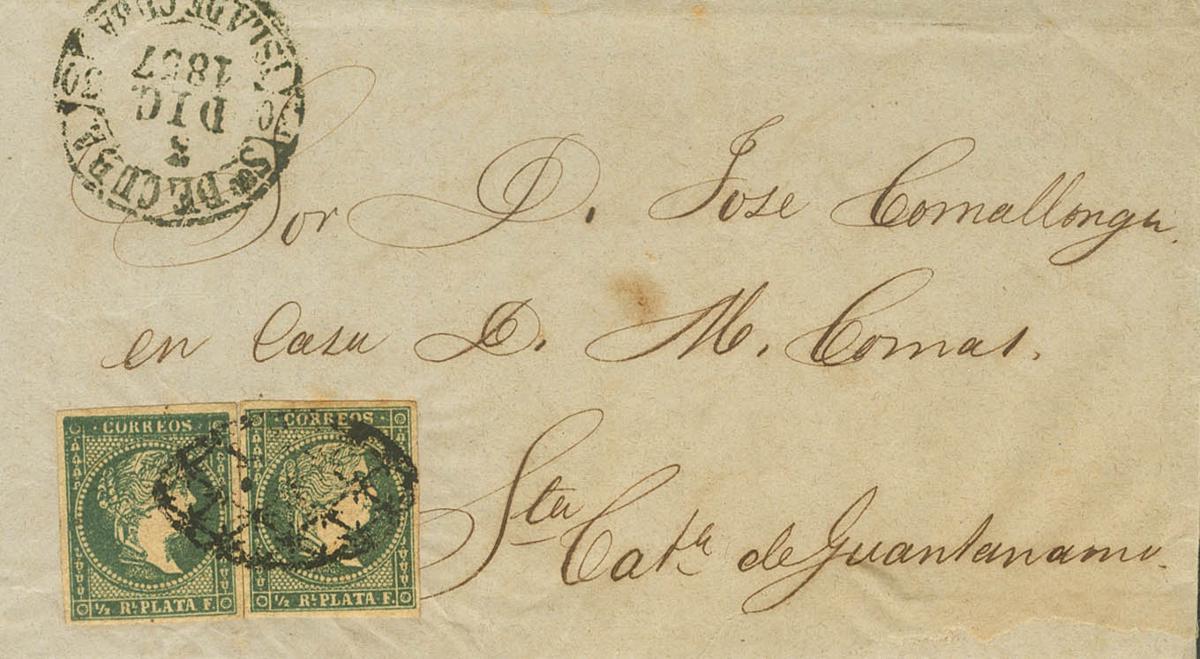 Sᵗᵒ DE CUBA
ISLA DE CUBA
3
DIC
1857
Sor D. Jose Comallonga.
en Casa D. M. Comas.
Sta Catᵃ de Guantanamo.
CORREOS CORREOS
½ Rˡ PLATA F. ½ Rˡ PLATA F.